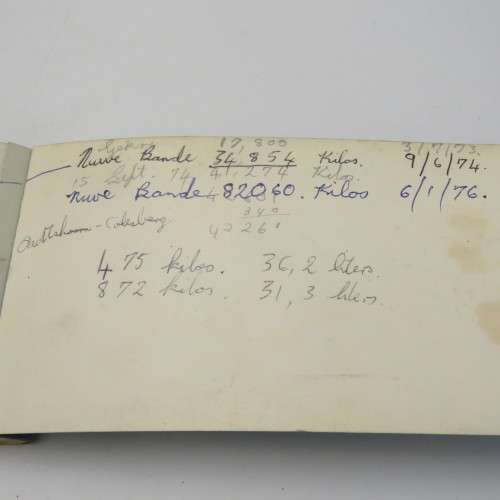 17,800 3/7/73.
Nuwe Bande 34,854 Kilos. 9/6/74.
15 Sept. 74 41,274 Kilos.
Nuwe Bande 82060. Kilos 6/1/76.
340
Oudtshoorn - Colesberg 42 261
475 kilos. 36,2 liters.
872 kilos. 31,3 liters.